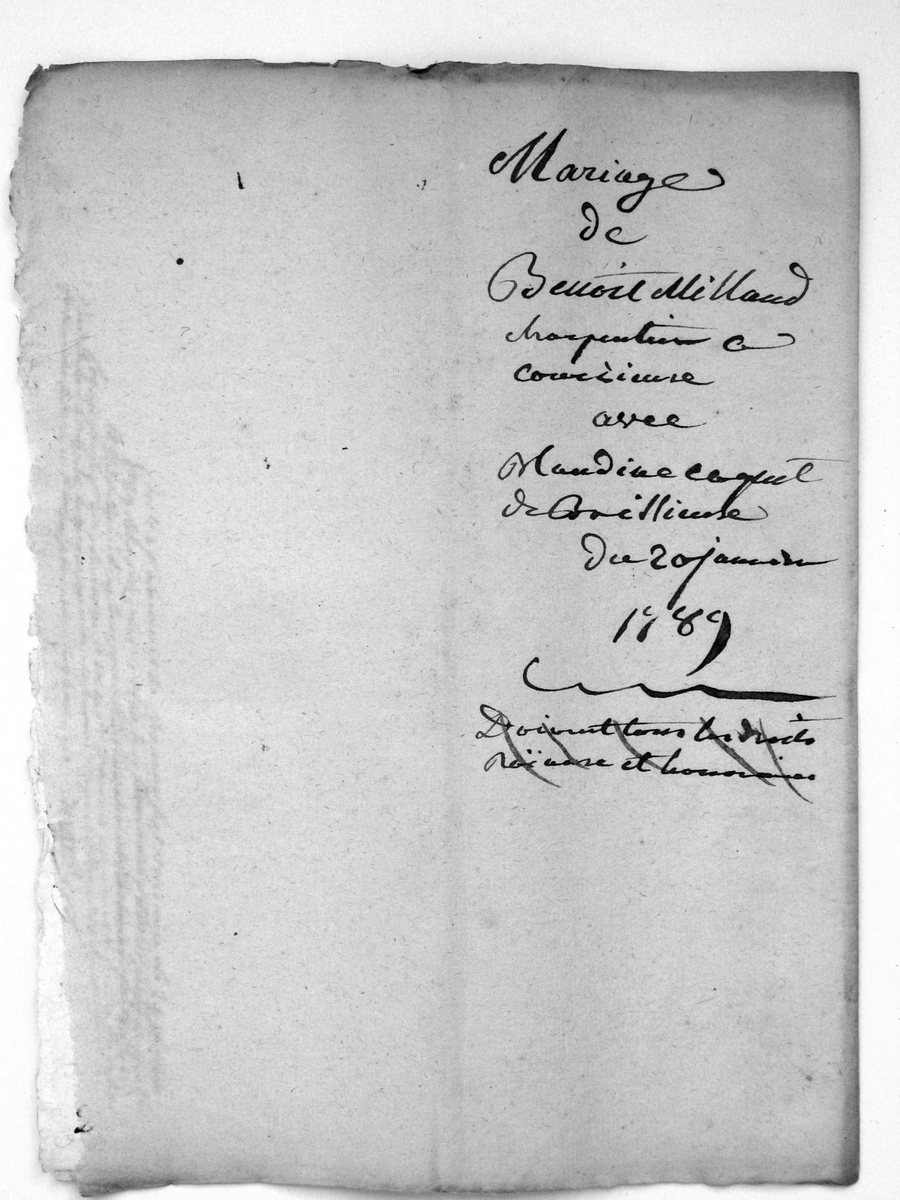 Mariage
de
Benoist Millaud
charpentier a
courzieuse
avec
Blandine coquet
de Brussieuse
du 20 janvier
1789
Doivent tous les droits
 et honoraires